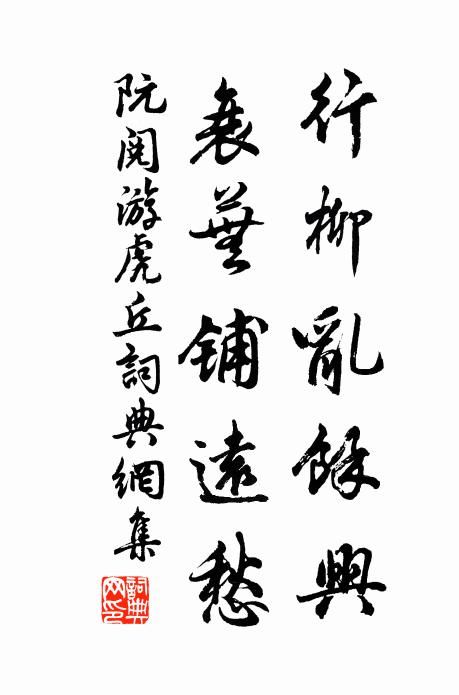 行柳亂餘興
衰蕪鋪遠愁
阮閱游虎丘詞典網集
詞典